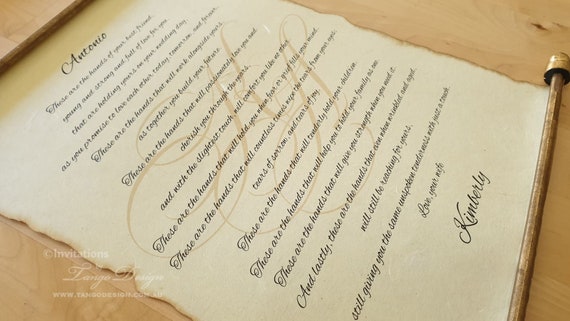 Antonio
These are the hands of your best friend,
young and strong and full of love for you,
that are holding yours on your wedding day,
as you promise to love each other today, tomorrow, and forever.
These are the hands that will work alongside yours,
as together you build your future.
These are the hands that will passionately love you and
cherish you through the years,
and with the slightest touch, will comfort you like no other.
These are the hands that will hold you when fear, or grief fills your mind.
These are the hands that will countless times wipe the tears from your eyes;
tears of sorrow, and tears of joy.
These are the hands that will tenderly hold your children.
These are the hands that will help you to hold your family as one.
These are the hands that will give you strength when you need it.
And lastly, these are the hands that even when wrinkled and aged,
will still be reaching for yours,
still giving you the same unspoken tenderness with just a touch.
Love, your wife
Kimberly
©Invitations
Tango Design
WWW.TANGODESIGN.COM.AU